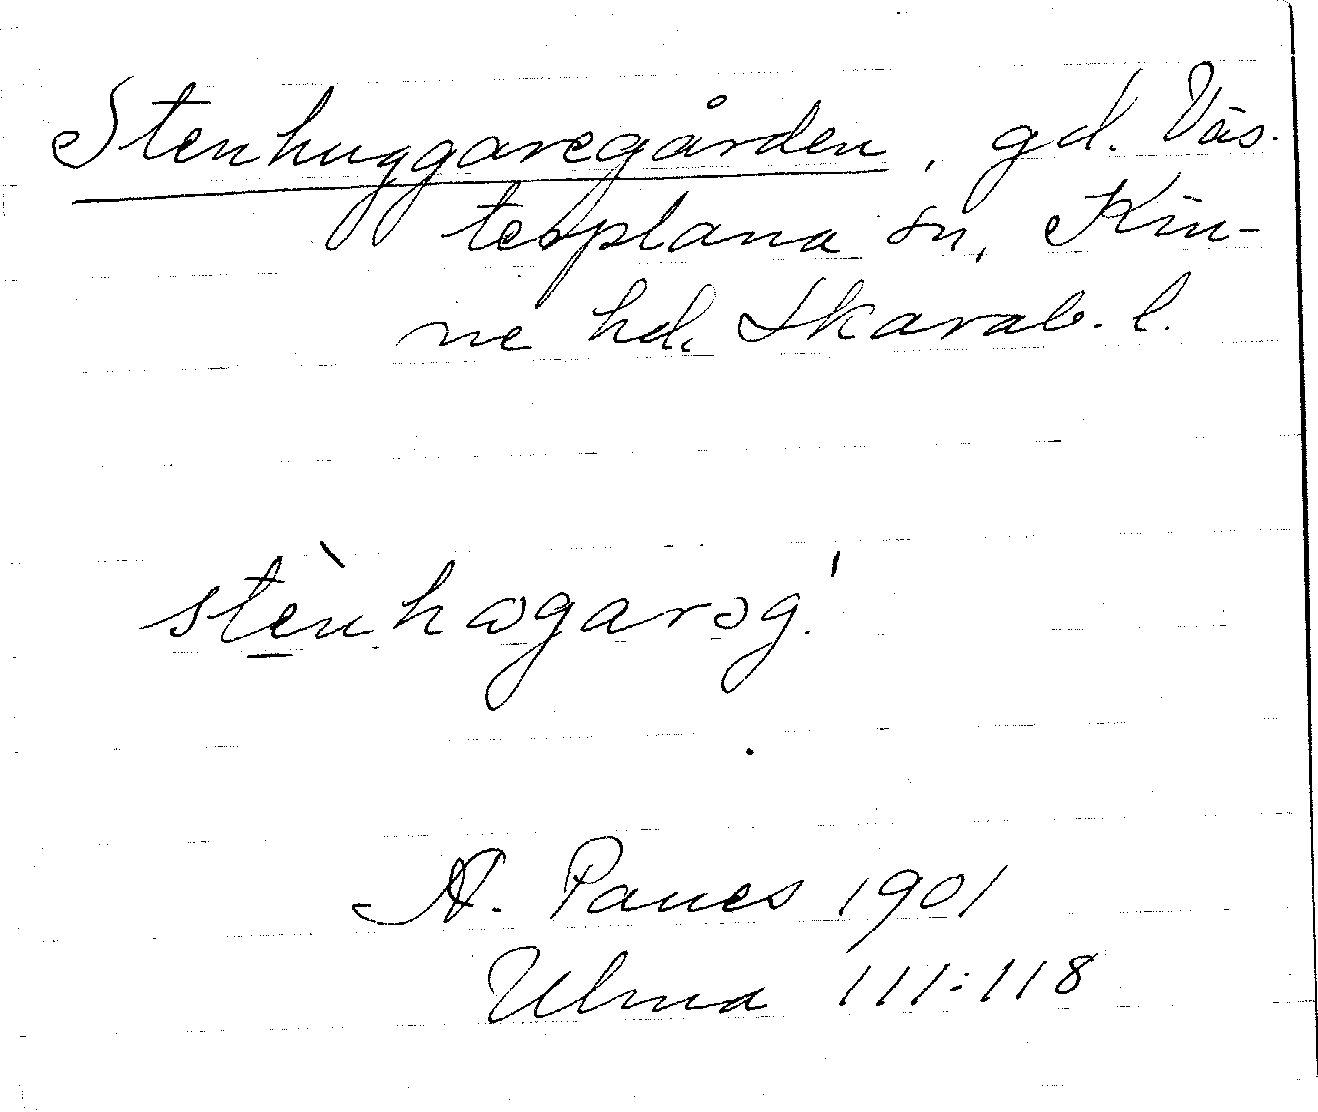 Stenhuggaregården, gd. Väs-
terplana sn, Kin-
ne hd, Skarab. l.
stènhωgarəg.'
A. Paues 1901
Ulma 111:118